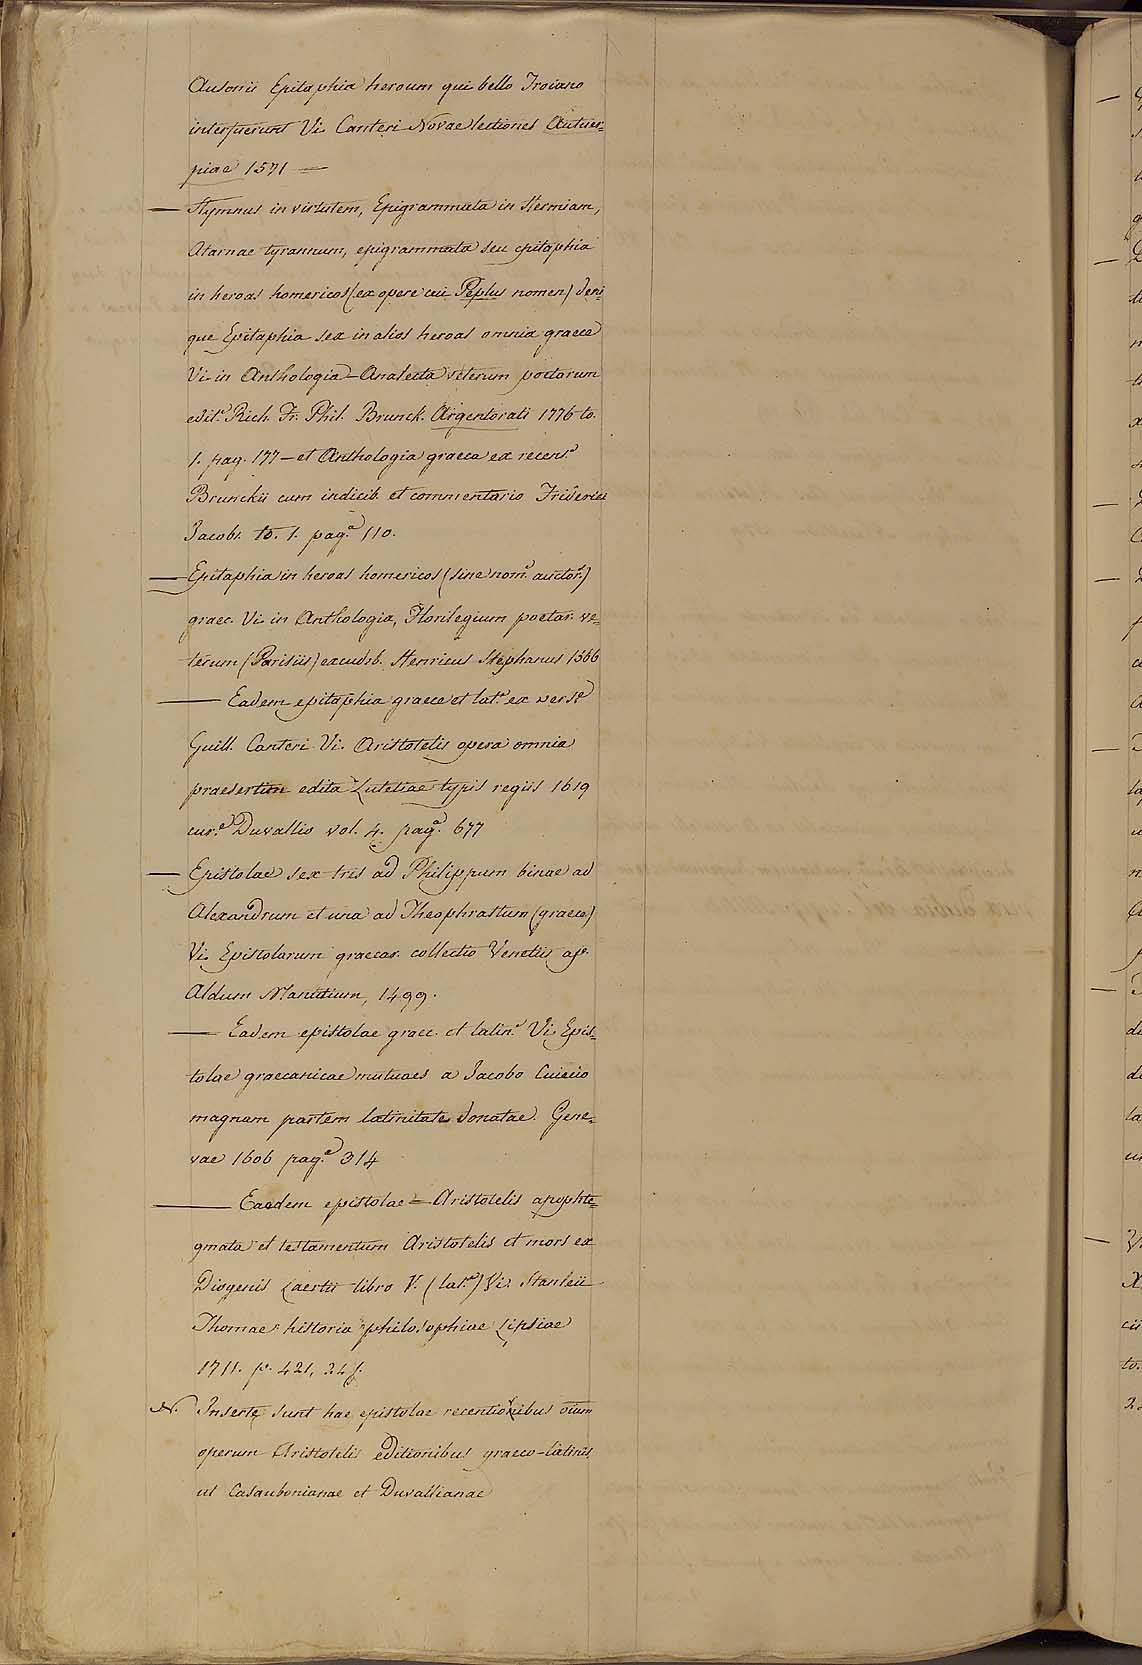 Ausonii Epitaphia heroum qui bello Troiano
interfuerunt Vi. Canteri Novae lectiones Antuer=
piae 1571 —
— Hymnus in virtutem, Epigrammata in Hermiam,
Atarnae tyrannum, epigrammata seu epitaphia
in heroas homericos (ex opere cui Peplus nomen) deni
que Epitaphia sex in alios heroas omnia graece
Vi. in Anthologia – Analecta veterum poetarum
edit.e Rich. Fr. Phil. Brunck. Argentorati 1776 to.
1. pag. 177 – et Anthologia graeca ex recens.e
Brunckii cum indicib. et commentario Friderici
Jacobs. to. 1. pag.a 110.
— Epitaphia in heroas homericos (sine nom.e auctor.)
graec. Vi. in Anthologia, Florilegium poetar. ve=
terum (Parisiis) excudeb. Henricus Stephanus 1566
— Eadem epitaphia graece et lat.e ex vers.e
Guill. Canteri Vi. Aristotelis opera omnia
praesertim edita Lutetiae typis regiis 1619
cur.e Duvallio vol. 4. pag.a 677
— Epistolae sex tris ad Philippum binae ad
Alexandrum et una ad Theophrastum (graece)
Vi. Epistolarum graecar. collectio Venetiis ap.
Aldum Manutium, 1499.
— Eadem epistolae graec. et latin.e Vi. Epis=
tolae graecanicae mutuaes a Jacobo Cuiacio
magnam partem latinitate donatae. Gene=
vae 1606 pag.a 314
— Eaedem epistolae – Aristotelis apophte=
gmata et testamentum Aristotelis et mors ex
Diogenis Laertii libro V. (lat.e) Vi. Stanleii
Thomae historia philosophiae Lipsiae
1711. p. 421, 24 s.
N. Insertę sunt hae epistolae recentioribus oium
operum Aristotelis editionibus graeco-latinis
ut Casaubonianae et Duvallianae